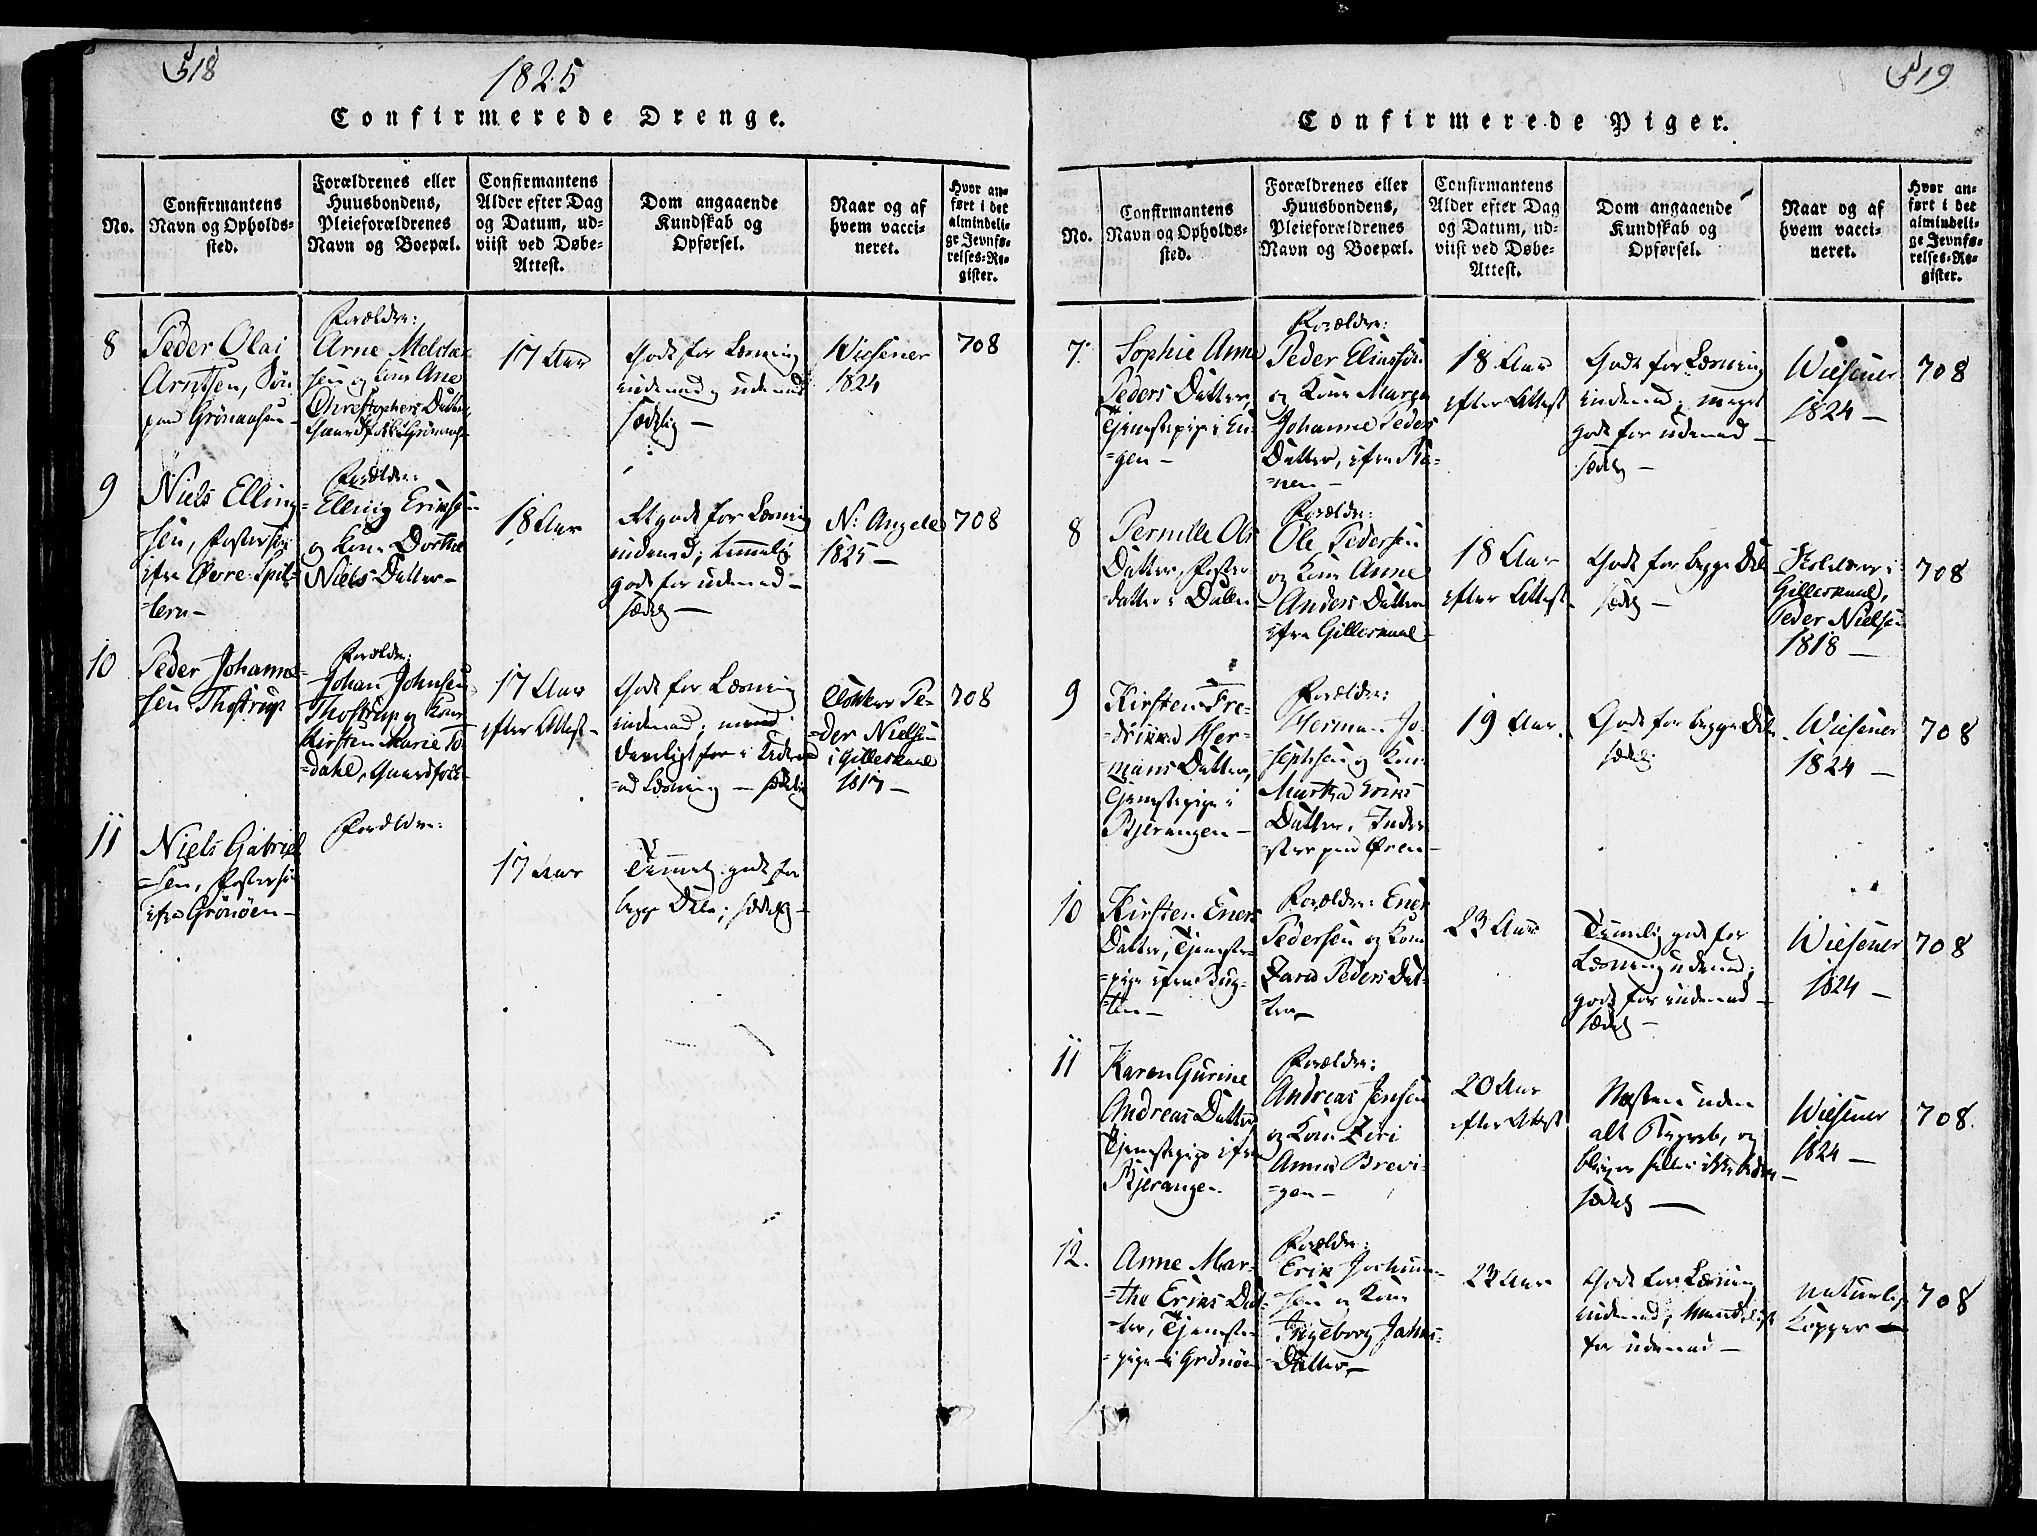 518
1825
Confirmerede Drenge.
No.
Confirmantens
Navn og Opholds-
sted.
Forældrenes eller
Huusbondens,
Pleieforældrenes
Navn og Boepæl.
Confirmantens
Alder efter Dag
og Datum, ud-
viist ved Døbe-
Attest.
Dom angaaende
Kundskab og
Opførsel.
Naar og af
hvem vacci-
neret.
Hvor an-
ført i det
almindeli-
ge Jevnfø-
relses-Re-
gister.
8
Peder Olai
Arntsen, Søn
paa Grønaasen
Forældre:
Arne
og Kone Ane
Christophers Datter,
17 Aar
Godt for Læsning
indenad, udenad
sædelig —
Wiesener
1824
708
9
Niels Elling-
sen, Fostersøn
ifra Øvre Spil-
deren —
Forældre:
Elling Eriksen
og Kone Dorthe
Niels Datter —
18 Aar
Ret godt for Læsning
indenad; temmelig
godt for udenad —
sædelig —
N: Angele
1825 —
708
10
Peder Johanne-
sen Thostrup
Forældre:
Johan Johnsen
Thostrup og Kone
Kirsten Marie To-
dahl, Gaardfolk
17 Aar
efter Attest —
Godt for Læsning
indenad;
Læsning — sædelig
Klokker Pe-
der Nielsen
i Gilleskaal
1817 —
708
11
Niels Gabriel-
sen, Fostersøn
ifra Grønøen —
Forældre:
17 Aar
Temmelig godt for
begge Dele; sædelig —
519
Confirmerede Piger.
No.
Confirmantens
Navn og Opholds-
sted.
Forældrenes eller
Huusbondens,
Pleieforældrenes
Navn og Boepæl.
Confirmantens
Alder efter Dag
og Datum, ud-
viist ved Døbe-
Attest.
Dom angaaende
Kundskab og
Opførsel.
Naar og af
hvem vacci-
neret.
Hvor an-
ført i det
almindeli-
ge Jevnfø-
relses-Re-
gister.
7.
Sophie Anne
Peders Datter,
Tjenestepige i En-
gen —
Forældre:
Peder Eliassen
og Kone Marga
Johanne Peders
Datter, ifra Ra-
nen —
18 Aar
efter Attest
Godt for Læsning
indenad; meget
godt for udenad —
sædelig —
Wiesener
1824 —
708
8
Pernille Ols
Datter, Foster-
datter i Dalen
Forældre:
Ole Pedersen
og Kone Anne
Anders Datter
ifra Gilleskaal
18 Aar
efter Attest
Godt for begge Dele
sædelig —
Gilleskaal,
Peder Nielsen
1818 —
708
9
Kirsten Fre-
drikka Her-
mans Datter,
Tjenestepige i
Bjerangen —
Forældre:
Herman Jo-
sephsen og Kone
Martha Eriks
Datter, Inder-
ster paa Øren —
19 Aar.
Godt for begge Dele
sædelig
Wiesener
1824 —
708
10
Kirsten Eners
Datter, Tjeneste-
pige ifra Bug-
ten —
Forældre: Ener
Pedersen og Kone
Zara Peders Dat-
ter —
23 Aar
Temmelig godt for
Læsning udenad;
godt for indenad —
sædelig —
Wiesener
1824 —
708
11
Karen Gurine
Andreas Datter,
Tjenestepige ifra
Bjerangen
Forældre:
Andreas Jensen
og Kone Ziri
Anna Brevi-
gen —
20 Aar
efter Attest
Næsten uden
alt Begreb, og
bliver heller ikke bedre —
sædelig —
Wiesener
1824 —
708.
12.
Anne Mar-
the Eriks Dat-
ter, Tjeneste-
pige i Grønøen
Forældre:
Erik Jochum-
sen og Kone
Ingeborg Johns
Datter —
23 Aar
Godt for Læsning
indenad;
for udenad —
naturlige
Kopper —
708